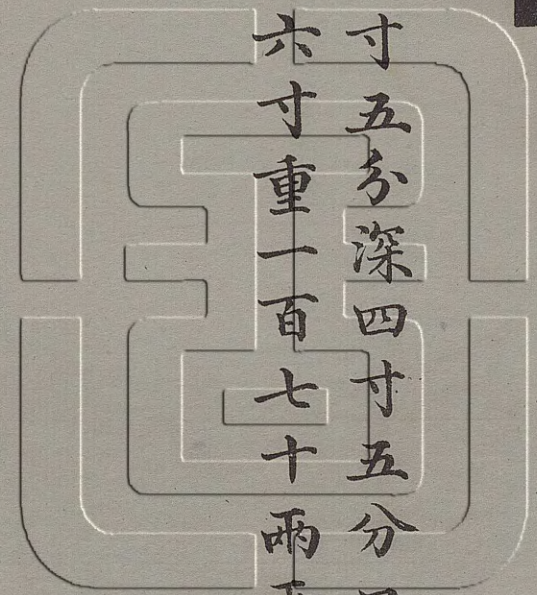 寸五分深四寸五分
六寸重一百七十兩